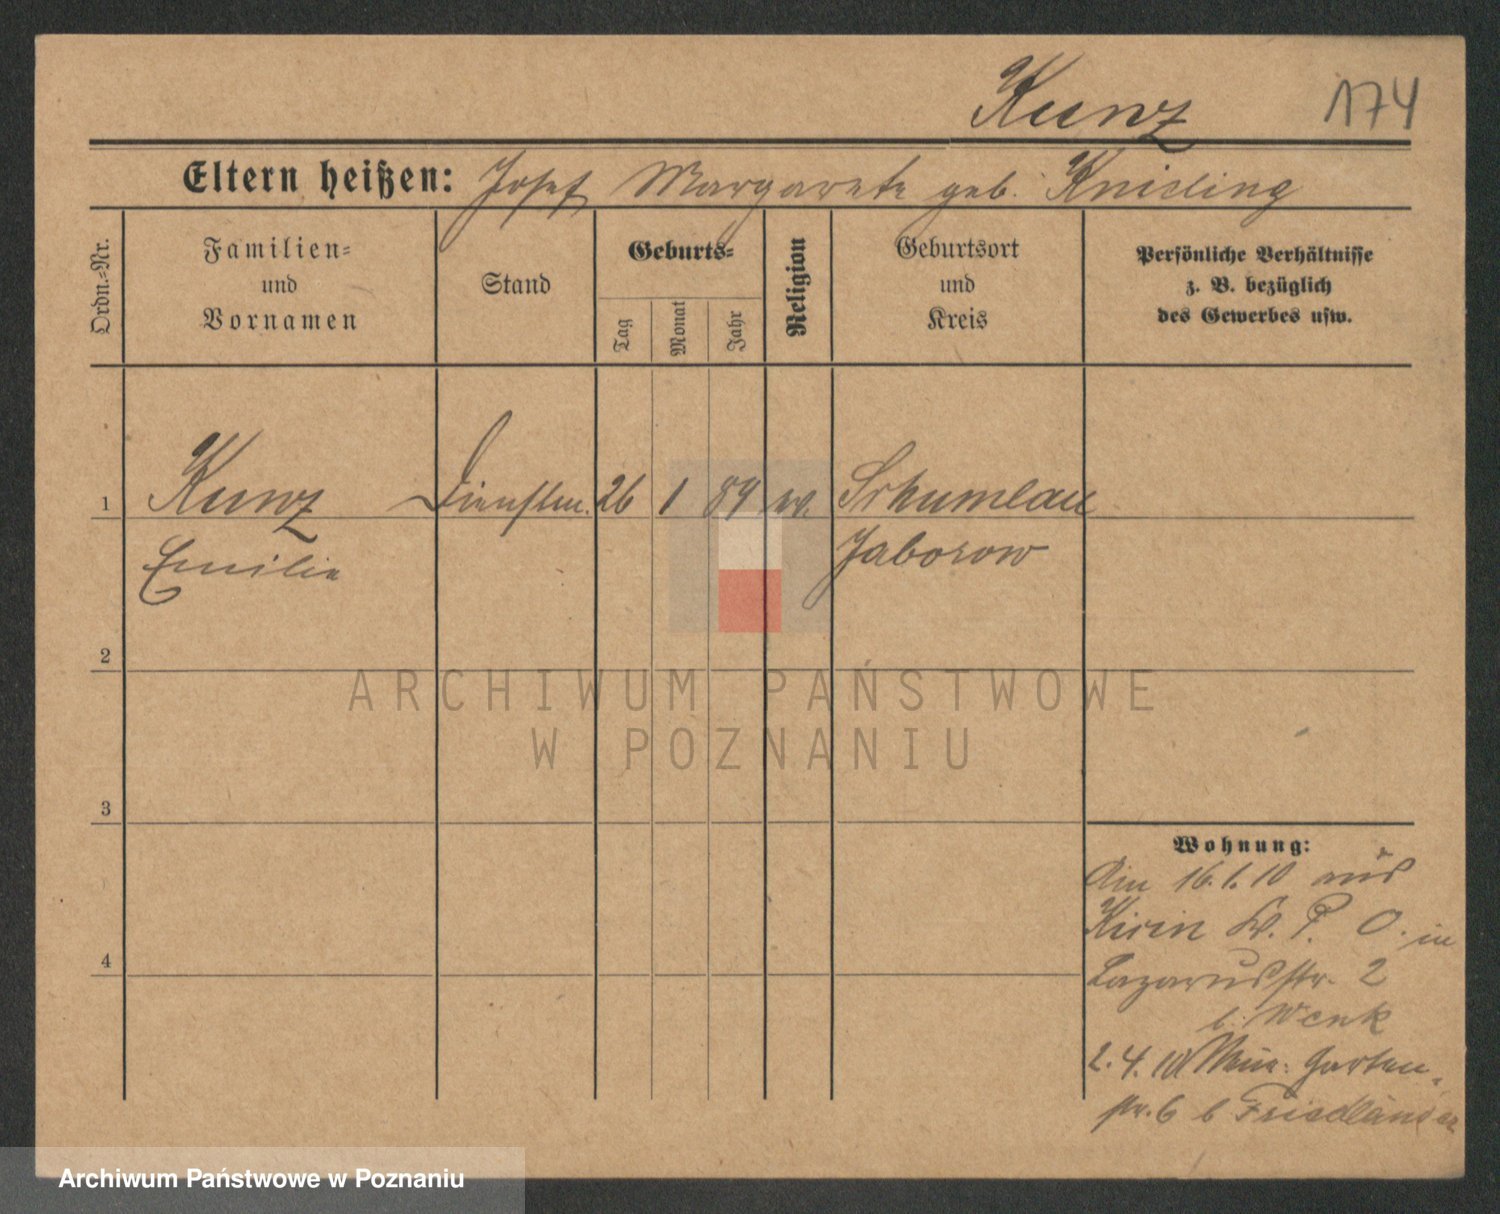 Kunz 174
Eltern heißen: Josef Margarete geb. Knisling
Ordn.=Nr.
Familien=
und
Vornamen
Stand
Geburts=
Tag
Monat
Jahr
Religion
Geburtsort
und
Kreis
Persönliche Verhältnisse
z. B. bezüglich
des Gewerbes usw.
1 Kunz Dienstm. 26 1 89 w. Schumlau
Emilie Jaborow
2
ARCHIWUM PAŃSTWOWE
W POZNANIU
3
Wohnung:
Am 16.1.10 aus
Kirin W. P. O. in
Lazarusstr. 2
b. Wenk
4
2.4.10 Garten-
str. 6 b Friedländer
Archiwum Państwowe w Poznaniu